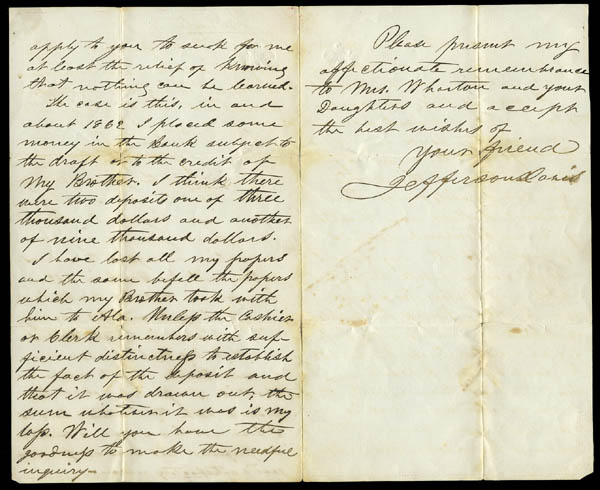 apply to you to seek for me
at least the relief of knowing
that nothing can be learned.
The case is this, in and
about 1862 I placed some
money in the Bank subject to
the draft or to the credit of
my Brother. I think there
were two deposits one of three
thousand dollars and another
of nine thousand dollars.
I have lost all my papers
and the same befell the papers
which my Brother took with
him to Ala. Unless the Cashier
or Clerk remembers with suf-
ficient distinctness to establish
the fact of the deposit and
that it was drawn out, the
sum whatever it was is my
loss. Will you have the
goodness to make the needful
inquiry—
Please present my
affectionate remembrance
to Mrs. Wharton and your
Daughters and accept
the best wishes of
Your friend
Jefferson Davis